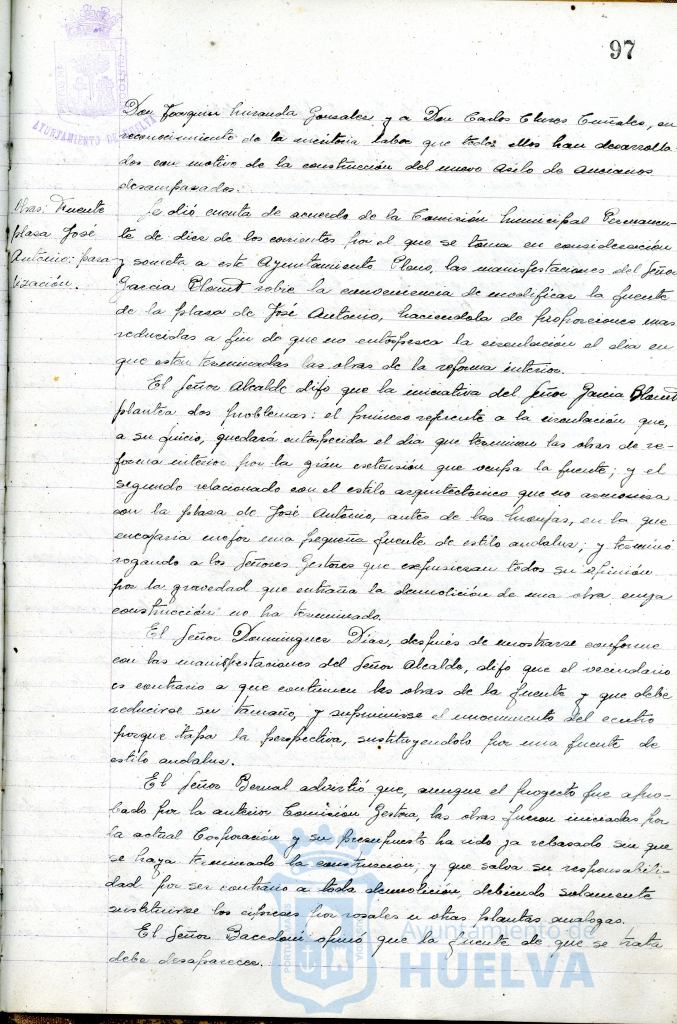 97
AYUNTAMIENTO DE HUELVA
Don Joaquin Miranda Gonzalez y a Don Carlos Cañales, en
reconocimiento de la meritoria labor que todos ellos han desarrolla-
do con motivo de la construcción del nuevo Asilo de Ancianos
desamparados.
Obras: Fuente
plaza José
Antonio: para
lización.
Se dió cuenta de acuerdo de la Comisión Municipal Permanen-
te de diez de los corrientes por el que se toma en consideración
y someta a este Ayuntamiento Pleno, las manifestaciones del Señor
Garcia sobre la conveniencia de modificar la fuente
de la plaza de José Antonio, haciendola de proporciones mas
reducidas a fin de que no entorpezca la circulación el dia en
que esten terminadas las obras de la reforma interior.
El Señor Alcalde dijo que la iniciativa del Señor Garcia
plantea dos problemas: el primero referente a la circulación que,
a su juicio, quedará entorpecida el dia que terminen las obras de re-
forma interior por la gran extensión que ocupa la fuente; y el
segundo relacionado con el estilo arquitectonico que no armoniza
con la plaza de José Antonio, antes de las Monjas, en la que
encajaria mejor una pequeña fuente de estilo andaluz; y terminó
rogando a los Señores Gestores que expusieran todos su opinión
por la gravedad que entraña la demolición de una obra cuya
construcción no ha terminado.
El Señor Dominguez Diaz, después de mostrarse conforme
con las manifestaciones del Señor Alcalde, dijo que el vecindario
es contrario a que continuen las obras de la fuente y que debe
reducirse su tamaño, y suprimirse el monumento del centro
porque tapa la perspectiva, sustituyendolo por una fuente de
estilo andaluz.
El Señor Bernal advirtió que, aunque el proyecto fue apro-
bado por la anterior Comisión Gestora, las obras fueron iniciadas por
la actual Corporación y su presupuesto ha sido ya rebasado sin que
se haya terminado la construcción; y que salva su responsabili-
dad por ser contrario a toda demolición debiendo solamente
sustituirse los cipreses por rosales u otras plantas analogas.
El Señor opinó que la fuente de que se trata
debe desaparecer.
Ayuntamiento de
HUELVA